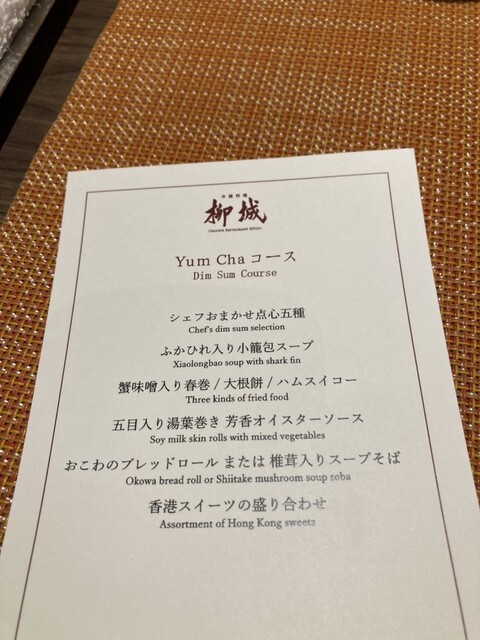 中國料理
柳城
Chinese Restaurant RYUJO
Yum Cha コース
Dim Sum Course
シェフおまかせ点心五種
Chef's dim sum selection
ふかひれ入り小籠包スープ
Xiaolongbao soup with shark fin
蟹味噌入り春巻 / 大根餅 / ハムスイコー
Three kinds of fried food
五目入り湯葉巻き 芳香オイスターソース
Soy milk skin rolls with mixed vegetables
おこわのブレッドロール または 椎茸入りスープそば
Okowa bread roll or Shiitake mushroom soup soba
香港スイーツの盛り合わせ
Assortment of Hong Kong sweets